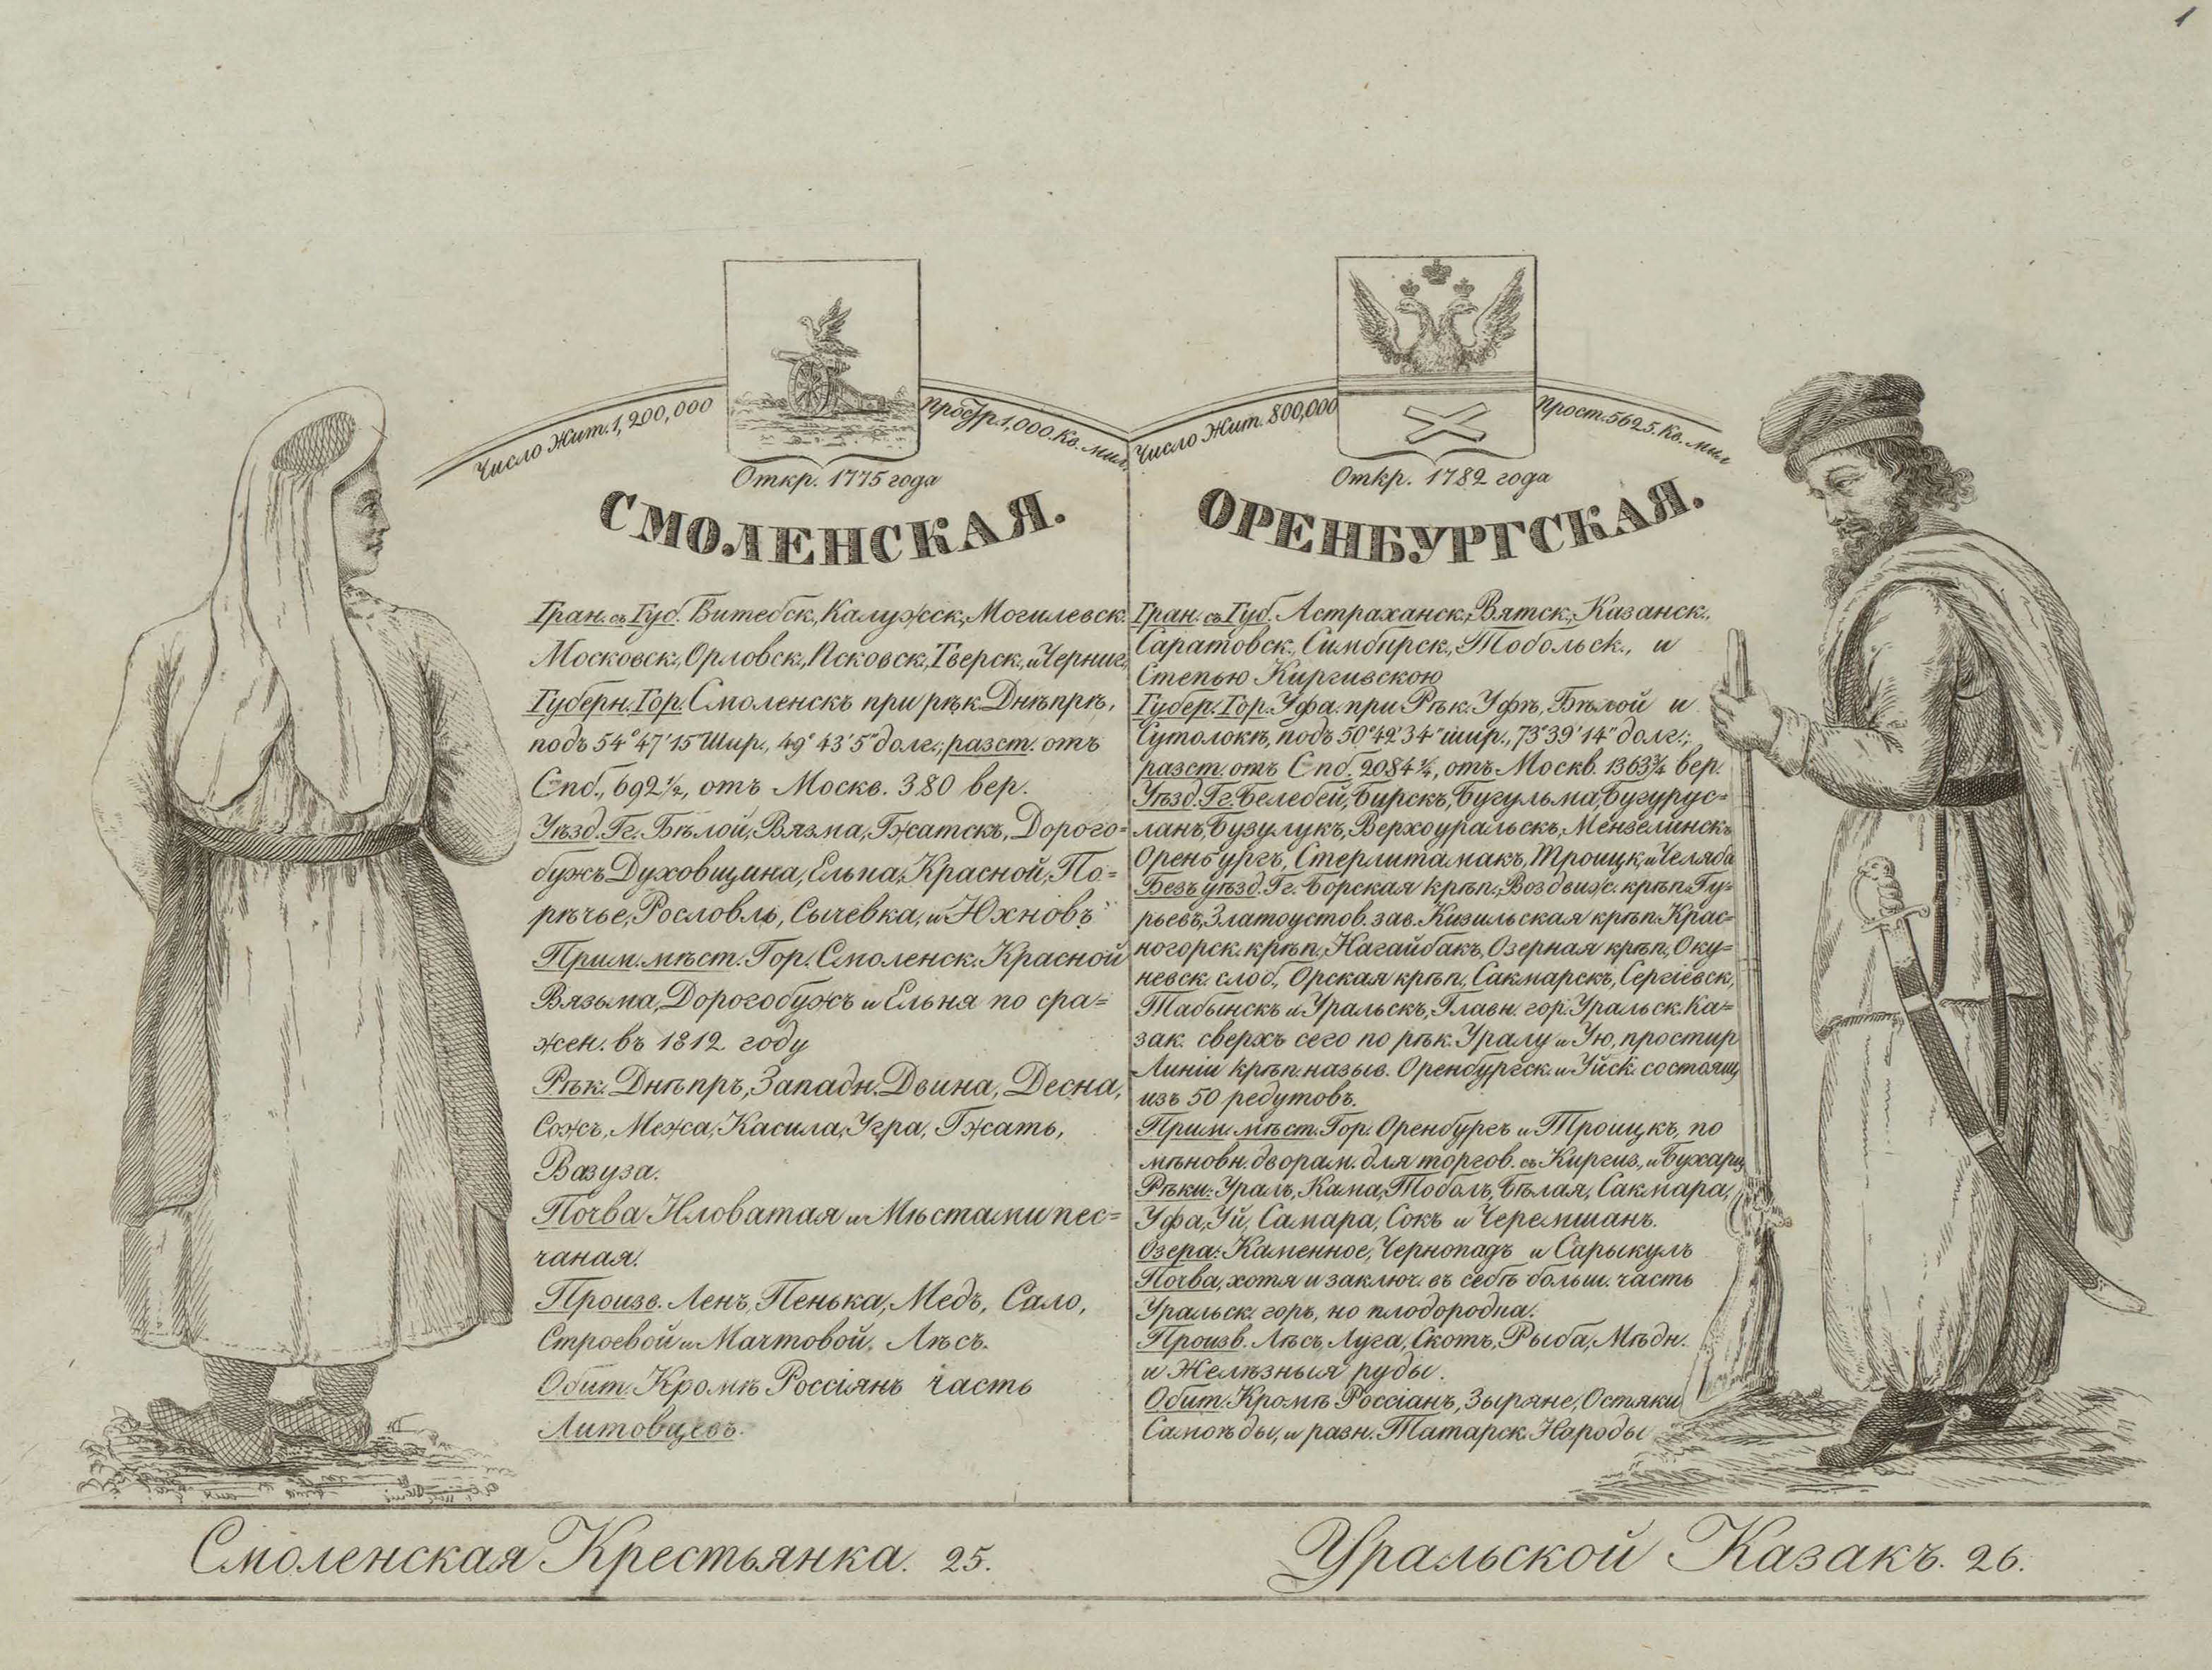 1
Число Жит. 1,200,000
Простр. 1,000. Кв. мил.
Откр. 1775 года
СМОЛЕНСКАЯ.
Гран. съ Губ. Витебск., Калужск., Могилевск.
Московск., Орловск., Псковск., Тверск., и Черниг.
Губерн. Гор. Смоленскъ при рѣк. Днѣпрѣ,
подъ 54° 47' 15" Шир., 49° 43' 5" долг.; разст. отъ
Спб., 692 ½, отъ Москв. 380 вер.
Уѣзд. Гг. Бѣлой, Вязма, Гжатскъ, Дорого=
бужъ, Духовщина, Ельна, Красной, По=
рѣчье, Рословль, Сычевка, и Юхновъ
Прим. мѣст. Гор. Смоленск. Красной
Вязьма, Дорогобужъ и Ельня по сра=
жен. въ 1812 году
Рѣк. Днѣпръ, Западн. Двина, Десна,
Сожъ, Межа, Касила, Угра, Гжать,
Вазуза.
Почва Иловатая и Мѣстами пес=
чаная.
Произв. Ленъ, Пенька, Медъ, Сало,
Строевой и Мачтовой, Лѣсъ.
Обит. Кромѣ Россіянъ часть
Литовцевъ.
Число Жит. 800,000
Прост. 5625. Кв. мил
Откр. 1782 года
ОРЕНБУРГСКАЯ.
Гран. съ Губ. Астраханск., Вятск., Казанск.,
Саратовск., Симбирск., Тобольск., и
Степью Киргизскою
Губер. Гор. Уфа. при Рѣк. Уфѣ, Бѣлой и
Сутолокѣ, подъ 50° 42' 34" шир., 73° 39' 14" долг.;
разст. отъ Спб. 2084 ¼, отъ Москв. 1363 ¾ вер.
Уѣзд. Гг. Белебей, Бирскъ, Бугульма, Бугурус=
ланъ, Бузулукъ, Верхоуральскъ, Мензелинскъ
Оренбургъ, Стерлитамакъ, Троицк, и Челяба
Безъ уѣзд. Гг. Борская крѣп., Воздвиж. крѣп. Гу=
рьевъ, Златоустов. зав. Кизильская крѣп. Крас=
ногорск. крѣп., Нагайбакъ, Озерная крѣп., Оку=
невск. слоб., Орская крѣп., Сакмарскъ, Сергіевск,
Табынскъ и Уральскъ, Главн. гор. Уральск. Ка=
зак. сверхъ сего по рѣк. Уралу и Ую, простир
Линіи крѣп. назыв. Оренбургск. и Уйск. состоящ
изъ 50 редутовъ.
Прим. мѣст. Гор. Оренбургъ и Троицкъ, по
мѣновн. дворам. для торгов. съ Киргиз., и Бухарц
Рѣки: Уралъ, Кама, Тоболъ, Бѣлая, Сакмара,
Уфа, Уй, Самара, Сокъ и Черемшанъ.
Озера: Каменное, Чернопадъ и Сарыкулъ
Почва, хотя и заключ. въ себѣ больш. часть
Уральск. горъ, но плодородна.
Произв. Лѣсъ, Луга, Скотъ, Рыба, Мѣдн.
и Желѣзныя руды.
Обит. Кромѣ Россіанъ, Зыряне, Остяки
Самоѣды, и разн. Татарск. Народы
Смоленская Крестьянка. 25.
Уральской Казакъ. 26.